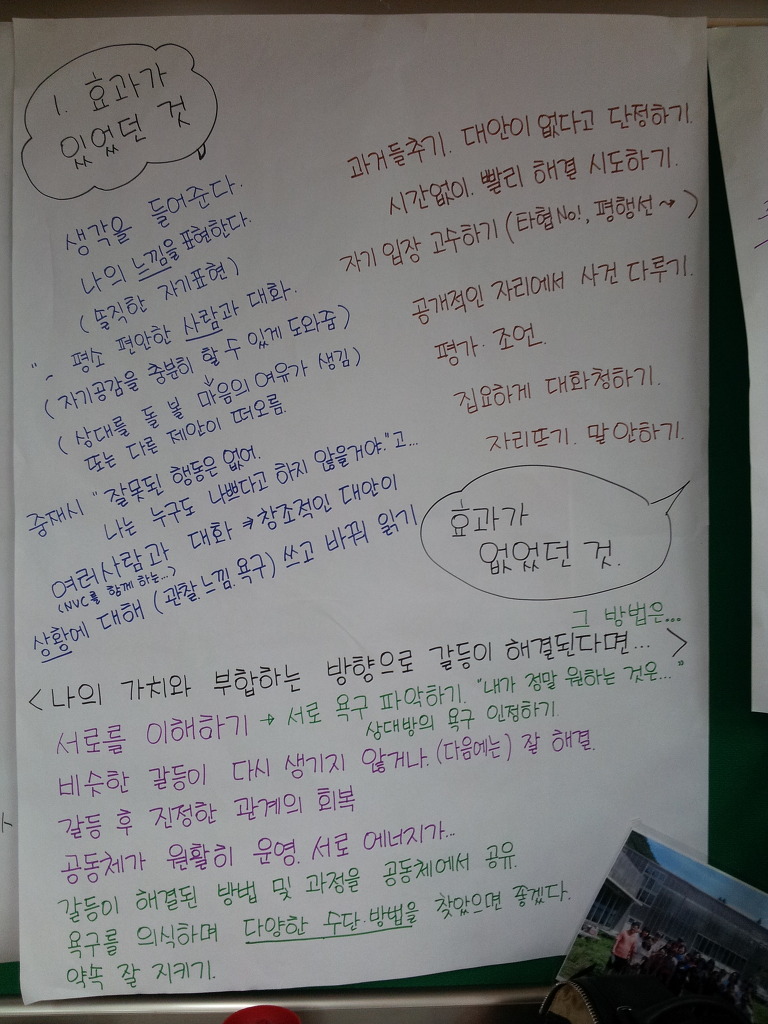 1. 효과가
있었던 것
생각을 들어준다.
나의 느낌을 표현한다.
(솔직한 자기표현)
평소 편안한 사람과 대화.
(자기공감을 충분히 할 수 있게 도와줌)
(상대를 돌 볼 마음의 여유가 생김)
또는 다른 제안이 떠오름.
중재시 "잘못된 행동은 없어.
나는 누구도 나쁘다고 하지 않을거야."고...
여러사람과 대화 → 창조적인 대안이
(NVC를 함께 하는...)
상황에 대해 (관찰.느낌.욕구) 쓰고 바꿔 읽기
과거들추기. 대안이 없다고 단정하기.
시간없이. 빨리 해결 시도하기.
자기 입장 고수하기 (타협No!, 평행선~)
공개적인 자리에서 사건 다루기.
평가. 조언.
집요하게 대화청하기.
자리뜨기. 말안하기.
효과가
없었던 것.
그 방법은...
<나의 가치와 부합하는 방향으로 갈등이 해결된다면...>
서로를 이해하기 → 서로 욕구 파악하기. "내가 정말 원하는 것은..."
상대방의 욕구 인정하기.
비슷한 갈등이 다시 생기지 않거나. (다음에는) 잘 해결.
갈등 후 진정한 관계의 회복
공동체가 원활히 운영. 서로 에너지가...
갈등이 해결된 방법 및 과정을 공동체에서 공유.
욕구를 의식하며 다양한 수단.방법을 찾았으면 좋겠다.
약속 잘 지키기.